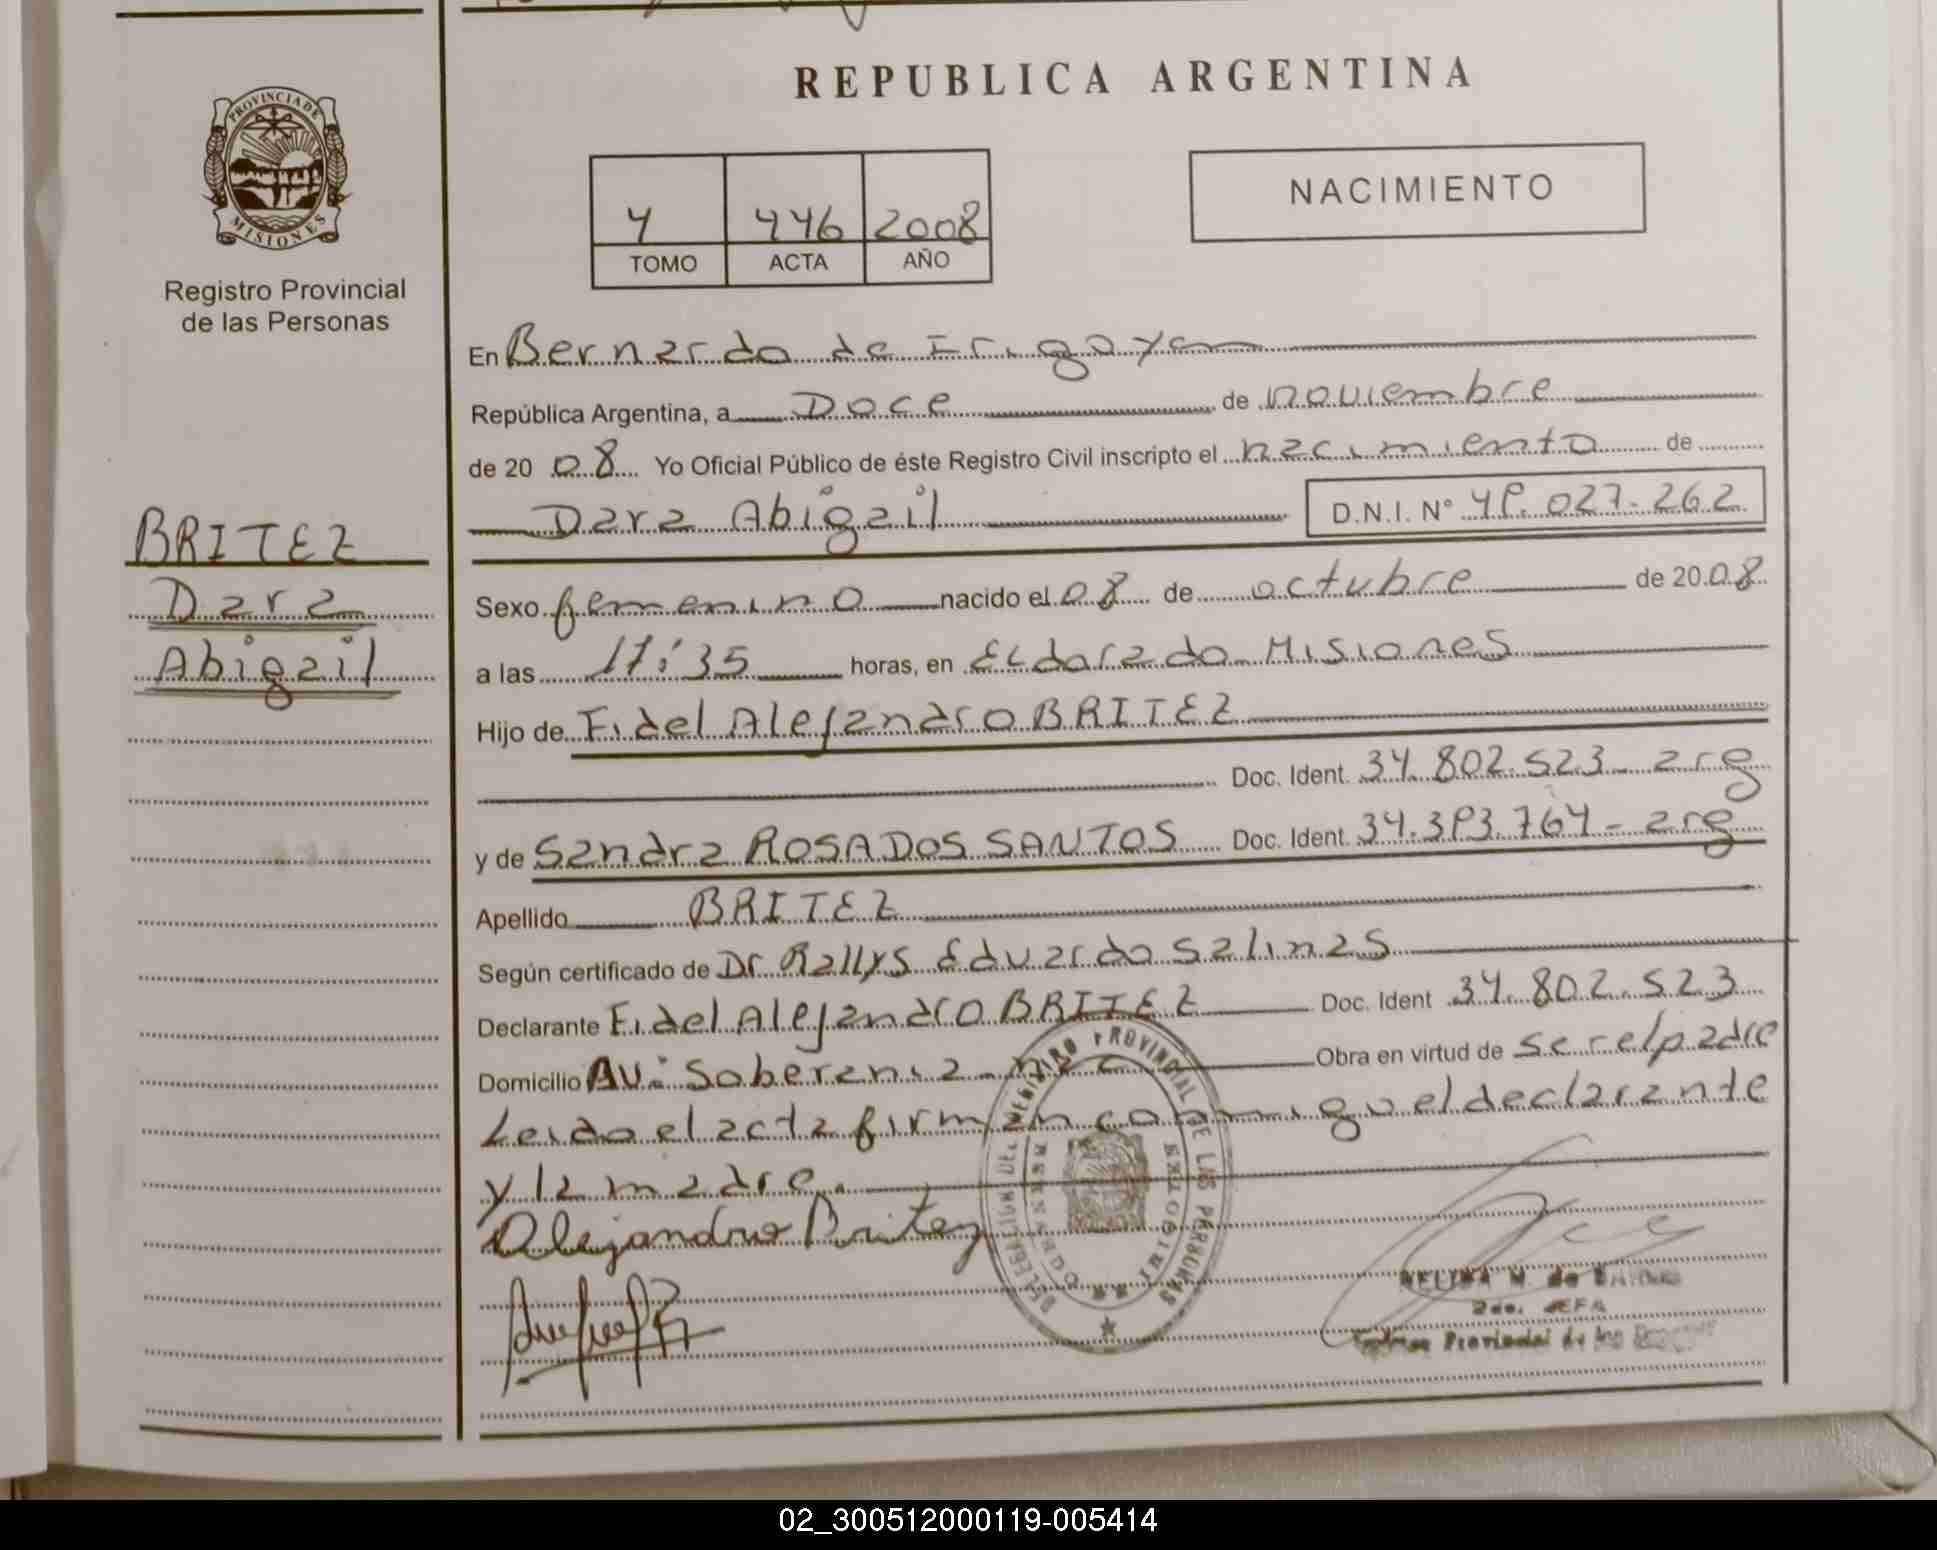 REPUBLICA ARGENTINA
PROVINCIA DE
MISIONES
Registro Provincial
de las Personas
NACIMIENTO
4 446 2008
TOMO ACTA AÑO
En Bernardo de Irigoyen
República Argentina, a Doce de noviembre
de 20 08 Yo Oficial Público de éste Registro Civil inscripto el nacimiento de
Dara Abigail D.N.I. Nº 49.027.262
BRITEZ
Dara
Abigail
Sexo femenino nacido el 08 de octubre de 20 08
a las 17:35 horas, en Eldorado Misiones
Hijo de Fidel Alejandro BRITEZ
Doc. Ident. 34.802.523 - arg
y de Sandra ROSA DOS SANTOS Doc. Ident. 34.393.764 - arg
Apellido BRITEZ
Según certificado de Dr Rallys Eduardo Salinas
Declarante Fidel Alejandro BRITEZ Doc. Ident 34.802.523
Domicilio AV: Soberania Obra en virtud de ser el padre
Leido el acta firman conmigo el declarante
y la madre.
Alejandro Britez
DELEGACION DEL REGISTRO PROVINCIAL DE LAS PERSONAS
M. de
2do. JEFA
Provincial de las
02_300512000119-005414